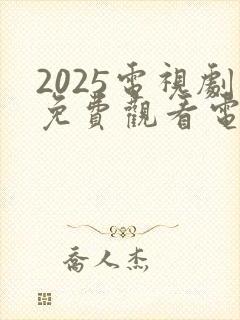 2025電視劇
免費觀看電
喬人杰